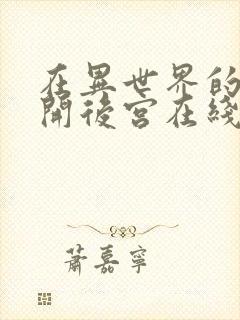 在異世界的
開後宮在綫
蕭嘉寧